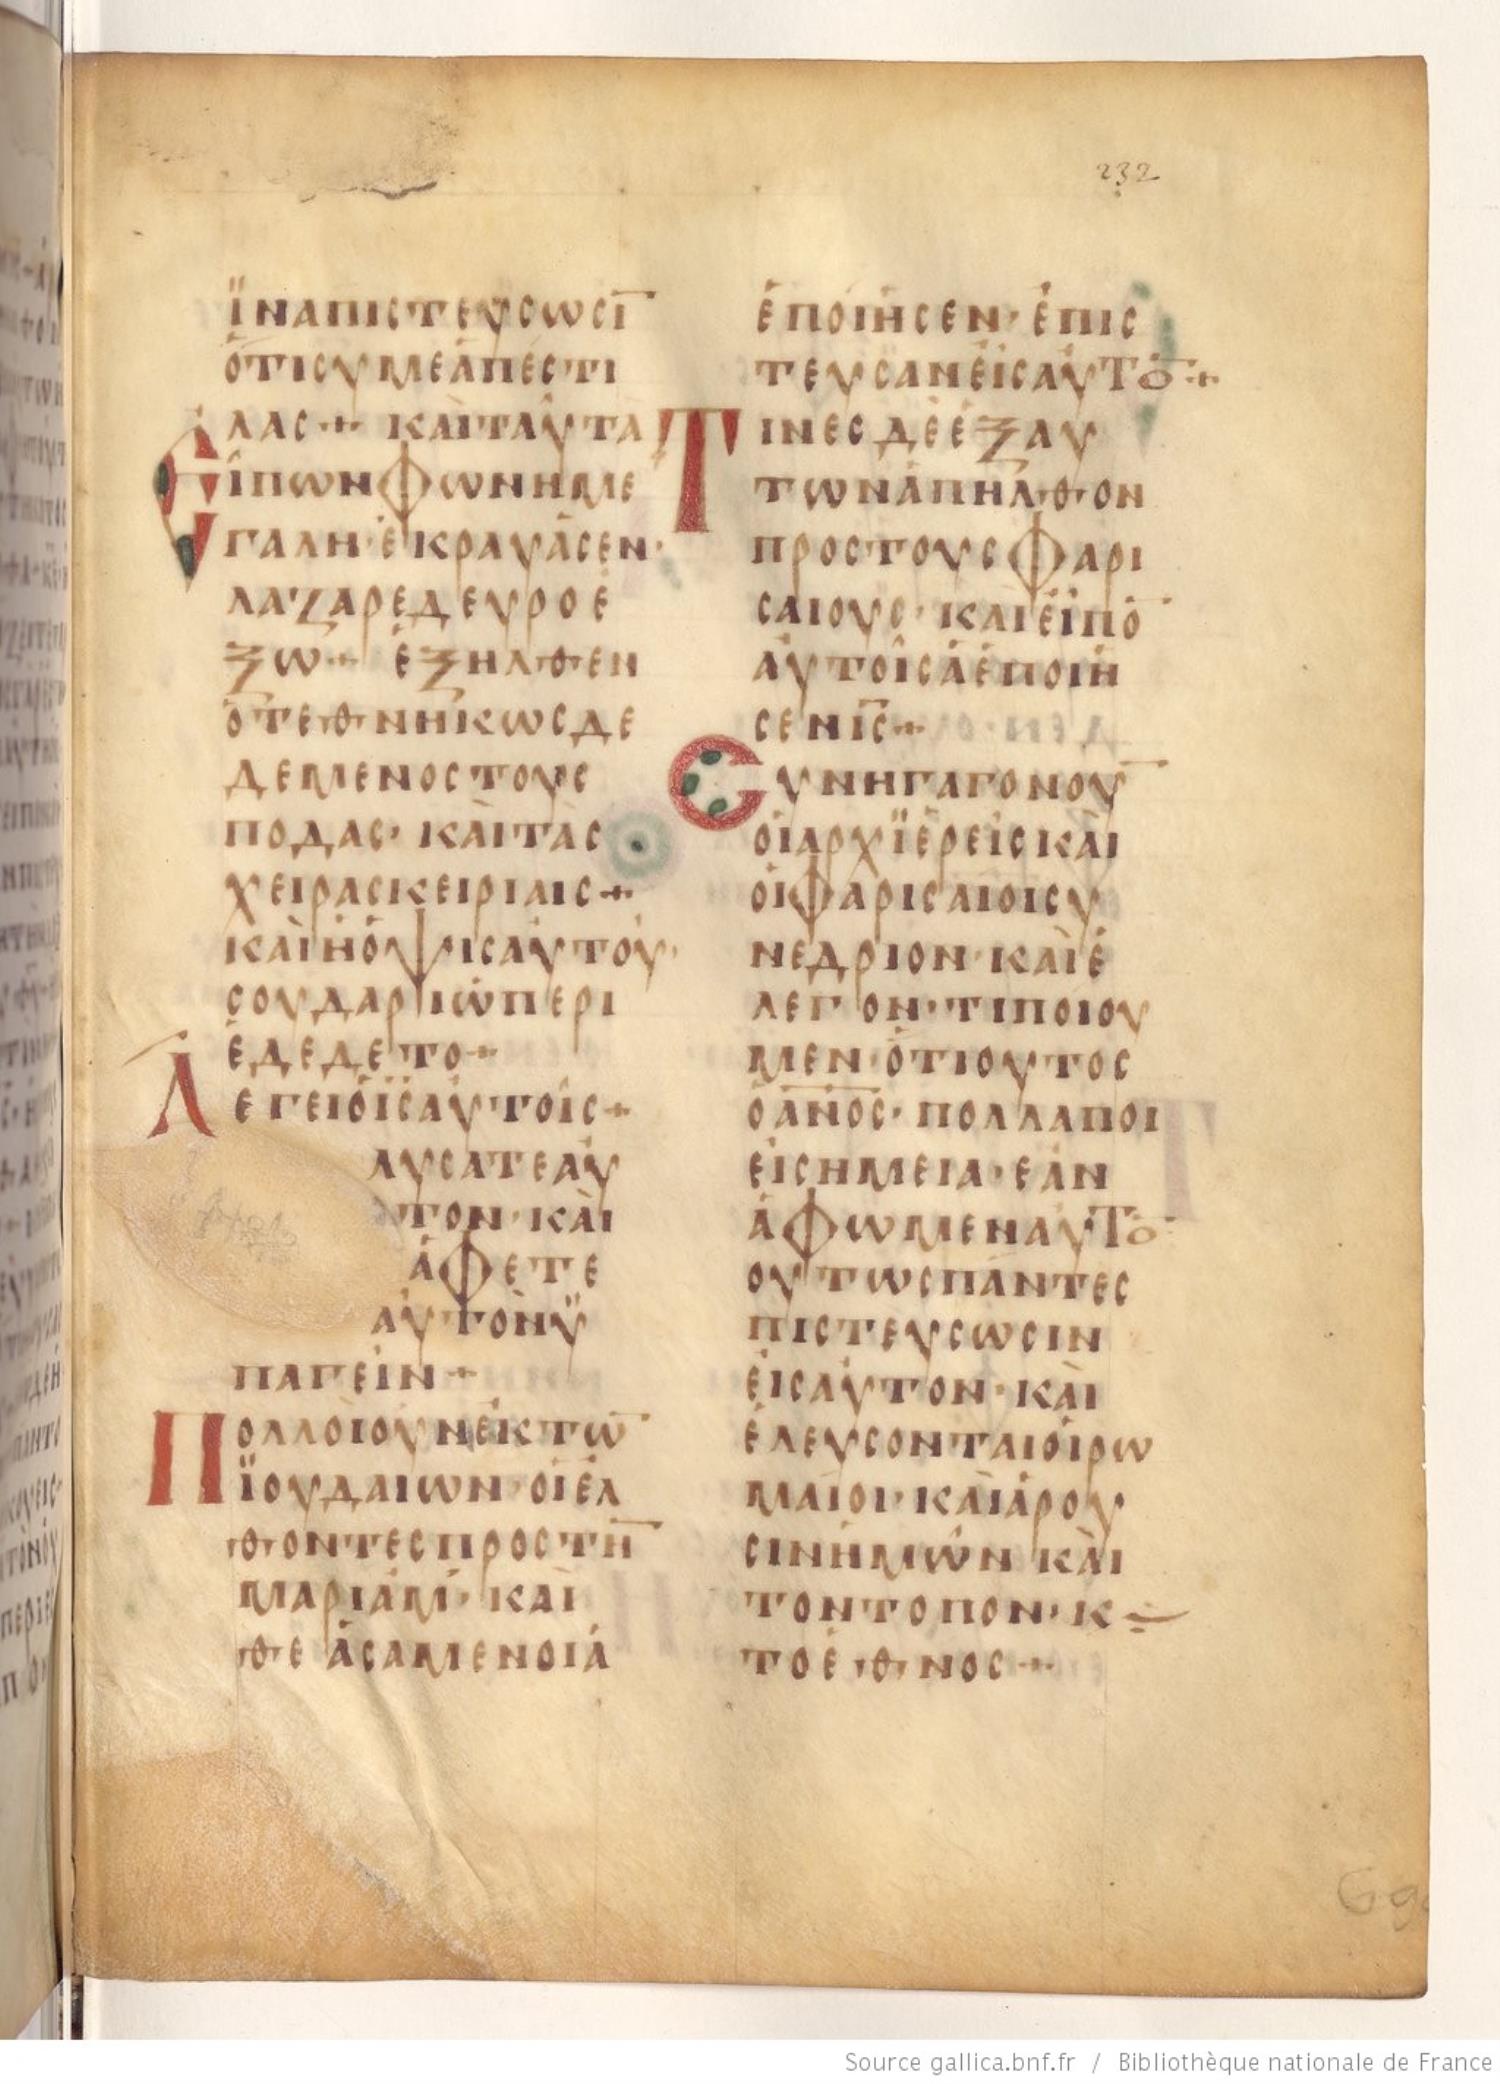 232
ϊναπιστευσωσῑ
ὁτισυμεἀπέστι
λας+ καὶταῦτα
Εἰπωνφωνημε
γαλη·ἐκραυάσεν·
λαζαρεδευροἐ
ξω+ ἐξηλθεν
ὁτεθνηκωσδε
δεμενοστους
ποδας· καὶτὰς
χειρασκειριαις+
καὶἡὀψισαυτοῦ·
σουδαριὼπερι
ἐδεδετο+
Λεγειὁῑσ̄αὐτοῖς+
λυσατεαὐ
τον· καὶ
ἀφετε
αὐτὸνϋ
παγεὶν+
Πολλοὶουνἐκτῶ̄
ϊουδαιων·οἱελ
θοντεσπροστη̄
μαριὰμ· καὶ
θεἀσαμενοιἁ
ἐποίησεν·ἐπις
τευσανεἰσαὐτο̄+
Τινεσδὲἐξαυ
τωνἀπηλθον
προστουσφαρι
σαιους· καιεἶπο̄
αὐτοῖσἁἐποιή
σενῑς̄+
Συνηγαγονου̅
οἱαρχϊἐρεὶσκὰι
οἱφαρισαιοισυ
νεδριον·καὶἐ
λεγον·τιποιου
μεν·ὁτιουτος
ὁᾱν̄ο̄ς̄· πολλαποι
εἰσημεια·εὰν
ἀφωμεναυτο̄
ουτωσπάντες
πιστευσωσιν
εἰσαὐτον·καὶ
ἐλευσονταιοἱρω
μαῖοι·καὶἀρου
σινἡμῶν καὶ
τοντοπον·κ
τοἐθνος+
Source gallica.bnf.fr / Bibliothèque nationale de France